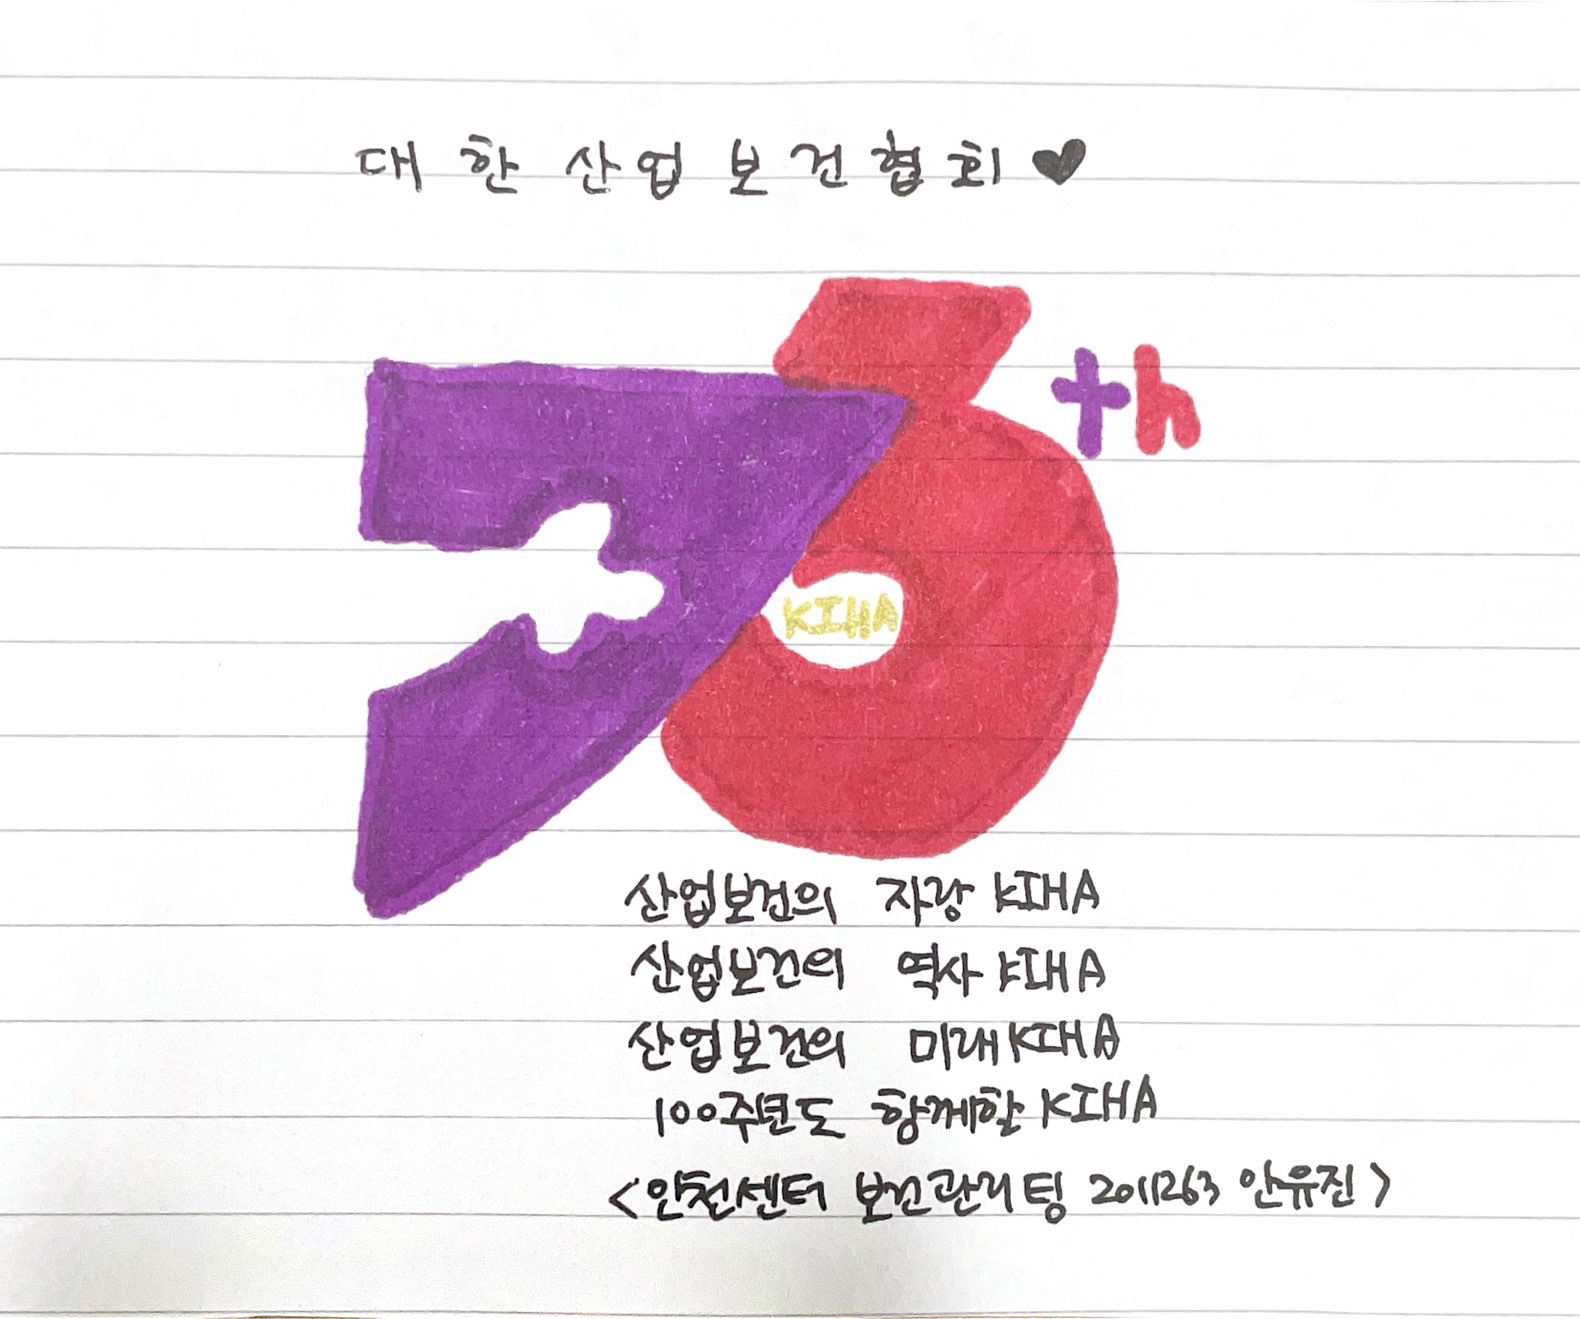 대한산업보건협회♥
75th
KIHA
산업보건의 자랑 KIHA
산업보건의 역사 KIHA
산업보건의 미래 KIHA
100주년도 함께할 KIHA
<인천센터 보건관리팀 2011263 안유진>